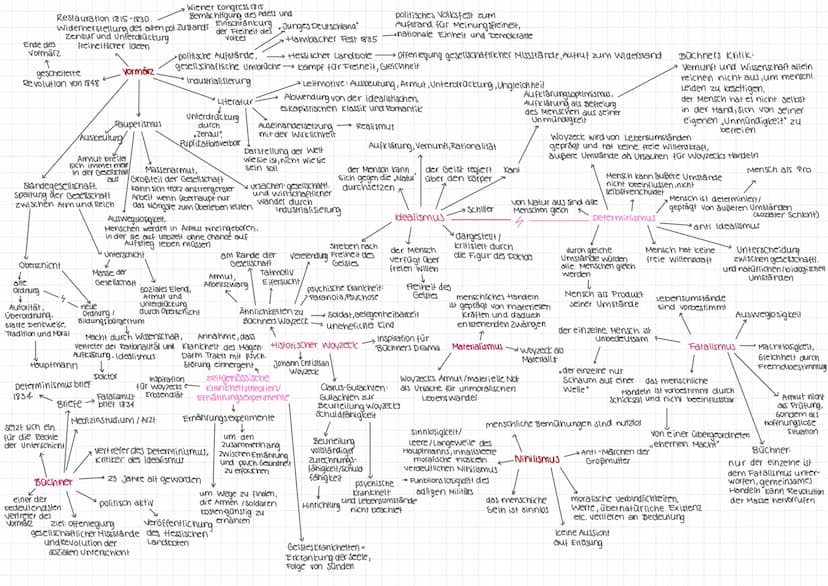 Wiener Congress 1815
Restauration 1815-1830
Widerherstellung des alten pol. Zustands
Zensur und Unterdrückung
freiheitlicher Ideen
Bemächtigung des Adels und
Einschränkung
der Freiheit des
Volkes
"Junges Deutschland"
Hambacher Fest 1835
politisches Volksfest zum
Aufstand für Meinungsfreiheit,
nationale Einheit und Demokratie
Ende des
Vormärz
gescheiterte
Revolution von 1848
Vormärz
politische Aufstände,
gesellschaftliche Umbrüche
Hessischer Landbote
Offenlegung gesellschaftlicher Missstände, Aufruf zum Widerstand
Kampf für Freiheit, Gleichheit
Industrialisierung
Literatur
Leitmotive: Ausbeutung, Armut, Unterdrückung, Ungleichheit
Abwendung von der idealistischen,
eskapistischen Klassik und Romantik
Auseinandersetzung
mit der Wirklichkeit
Realismus
Darstellung der Welt
wie sie ist, nicht wie sie
sein soll
Unterdrückung
durch
"Zensur",
Publicationsverbot
Ausbeutung
Pauperismus
Armut breitet
sich immer mehr
in der Gesellschaft
aus
Massenarmut,
Großteil der Gesellschaft
kann sich trotz anstrengender
Arbeit wenn überhaupt nur
das Nötigste zum Überleben leisten
Ausweglosigkeit,
Menschen werden in Armut hineingeboren,
in der sie auf ewig ohne Chance auf
Aufstieg leben müssen
Ursachen: gesellschaftl.
und wirtschaftlicher
Wandel durch
Industrialisierung
Ständegesellschaft
Spaltung der Gesellschaft
zwischen Arm und Reich
Oberschicht
alte
Ordnung
neue
Ordnung /
Bildungsbürgertum
Autorität,
Überordnung,
starre Denkweise,
Tradition und Moral
Hauptmann
Macht durch Wissenschaft,
Vertreter des Rationalität und
Aufklärung, Idealismus
Doktor
Unterschicht
Masse der
Gesellschaft
soziales Elend,
Armut und
Unterdrückung
durch Oberschicht
Aufklärung, Vernunft, Rationalität
der Mensch kann
sich gegen die "Natur"
durchsetzen
der Geist regiert
über den Körper
Kant
Aufklärungsoptimismus,
Aufklärung als Befreiung
des Menschen aus seiner
Unmündigkeit
Büchners Kritik:
Vernunft und Wissenschaft allein
reichen nicht aus, um menschl.
Leiden zu beseitigen,
der Mensch hat es nicht selbst
in der Hand, sich von seiner
eigenen "Unmündigkeit" zu
befreien
Idealismus
Schiller
dargestellt /
kritisiert durch
die Figur des Doktor
Streben nach
Freiheit des
Geistes
der Mensch
verfügt über
freien Willen
Freiheit des
Geistes
Woyzeck wird von Lebensumständen
geprägt und hat keine freie Willenskraft,
äußere Umstände als Ursachen für Woyzecks Handeln
Mensch kann äußere Umstände
nicht beeinflussen, nicht
selbstverschuldet
Mensch als Pro
Mensch ist determiniert /
geprägt von äußeren Umständen
(sozialer Schicht)
von Natur aus sind alle
Menschen gleich
Determinismus
anti Idealismus
durch gleiche
Umstände würden
alle Menschen gleich
werden
Mensch als Produkt
seiner Umstände
Mensch hat keine
freie Willenskraft
Unterscheidung
zwischen gesellschaftl.
und natürlichen/biologischen
Umständen
am Rande der
Gesellschaft
Tatmotiv
Eifersucht
Verelendung
Armut,
Arbeitszwang
Ähnlichkeiten zu
Büchners Woyzeck
psychische Krankheit:
Paranoia, Psychose
Soldat, Gelegenheitsarbeit
uneheliches Kind
Historischer Woyzeck
Inspiration für
Büchners Drama
Johann Christian
Woyzeck
Clarus-Gutachten:
Gutachten zur
Beurteilung Woyzecks
Schuldfähigkeit
Beurteilung
vollständiger
Zurechnungs-
fähigkeit/Schuld-
fähigkeit
Hinrichtung
psychische
Krankheit
und Lebensumstände
nicht beachtet
Annahme, dass
Krankheit des Magen-
Darm Trakts mit psych.
Störung einhergeht
zeitgenössische
Krankheitstheorien/
Ernährungsexperimente
Inspiration
für Woyzecks
Erbsendiät
Ernährungsexperimente
um den
Zusammenhang
zwischen Ernährung
und psych. Gesundheit
zu erforschen
um Wege zu finden,
die Armen / Soldaten
kostengünstig zu
ernähren
Geisteskrankheiten =
Erkrankung der Seele,
Folge von Sünden
menschliches Handeln
ist geprägt von materiellen
Kräften und dadurch
entstehenden Zwängen
Materialismus
Woyzeck als
Materialist
Woyzecks Armut/materielle Not
als Ursache für unmoralischen
Lebenswandel
Lebensumstände
sind vorbestimmt
Ausweglosigkeit
der einzelne Mensch ist
unbedeutsam
"der einzelne nur
Schaum auf einer
Welle"
Fatalismus
Machtlosigkeit,
Gleichheit durch
Fremdbestimmung
das menschliche
Handeln ist vorbestimmt durch
Schicksal und nicht beeinflussbar
von einer übergeordneten
"ehernen Macht"
Armut nicht
als Prüfung,
sondern als
hoffnungslose
Situation
Büchner:
nur der einzelne ist
dem Fatalismus unter-
worfen, gemeinsames
Handeln kann Revolution
der Masse hervorrufen
menschliche Bemühungen sind nutzlos
Sinnlosigkeit/
Leere / Langeweile des
Hauptmanns, inhaltsleere
moralische Floskeln
verdeutlichen Nihilismus
Funktionslosigkeit des
adligen Militärs
Nihilismus
Anti-Märchen der
Großmutter
das menschliche
Sein ist sinnlos
keine Aussicht
auf Erlösung
moralische Verbindlichkeiten,
Werte, übernatürliche Existenz
etc. verlieren an Bedeutung
Determinismus brief
1834
Briefe
Fatalismus-
brief 1834
Medizinstudium / Arzt
setzt sich ein
für die Rechte
der Unterschicht
Vertreter des Determinismus,
Kritiker des Idealismus
Büchner
23 Jahre alt geworden
politisch aktiv
einer der
bedeutendsten
Vertreter des
Vormärz
Ziel: Offenlegung
gesellschaftlicher Missstände
und Revolution der
sozialen Unterschicht
Veröffentlichung
des Hessischen
Landboten